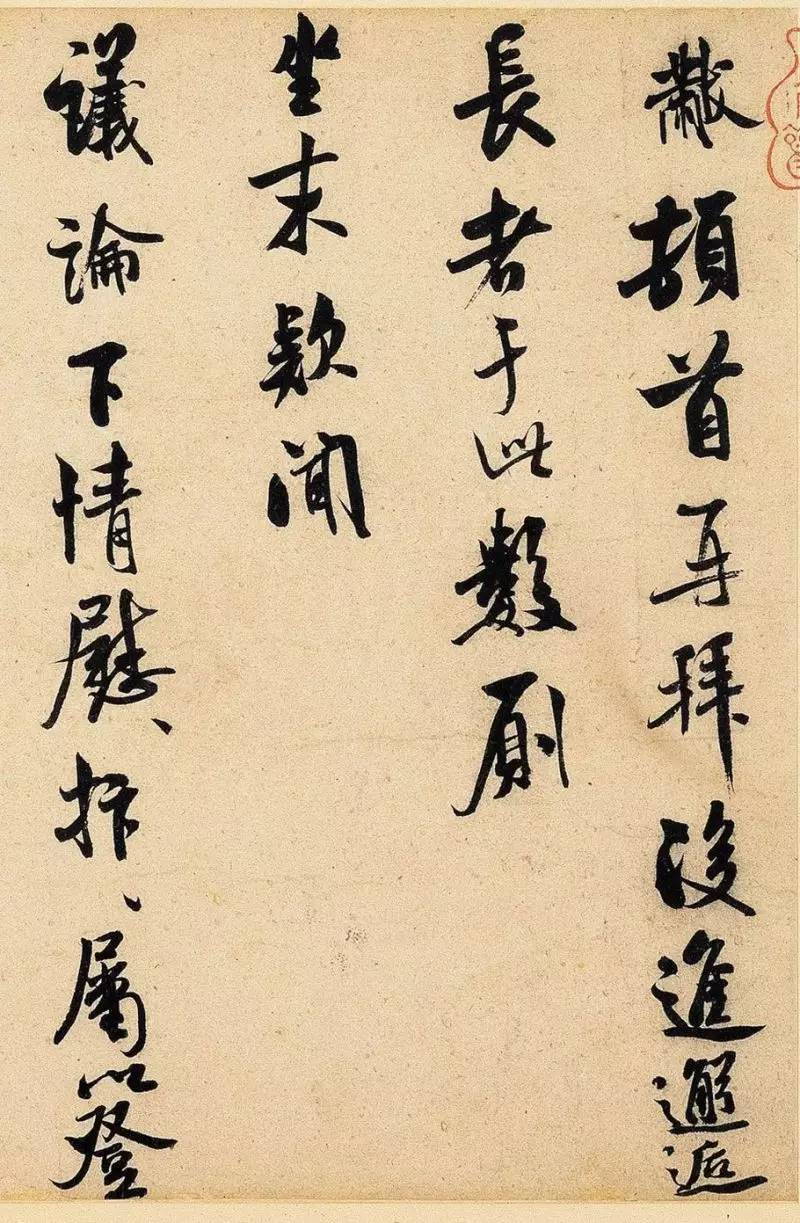 黻頓首再拜後進邂逅
長者于此數厠
坐末款聞
議論下情慰〻抃〻屬以登